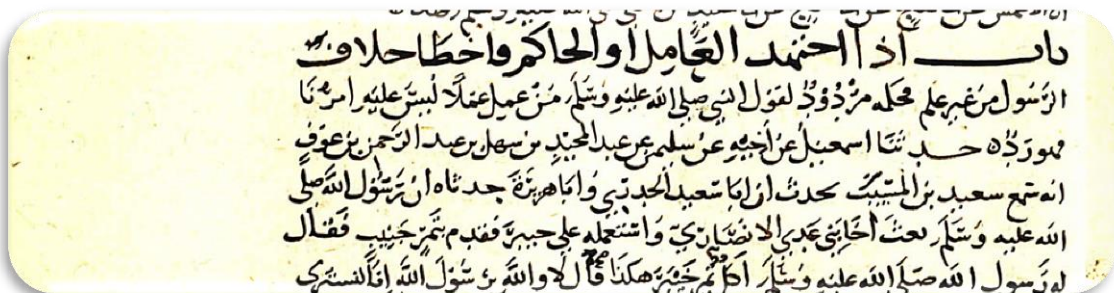 باب اذا اجتهد العامل او الحاكم فاخطا خلاف
الرسول من غير علم فحكمه مردود لقول النبي صلى الله عليه وسلم من عمل عملا ليس عليه امرنا
فهو رد حدثنا اسمعيل عن اخيه عن سليمن عن عبد المجيد بن سهل بن عبد الرحمن بن عوف
انه سمع سعيد بن المسيب يحدث ان ابا سعيد الخدري وابا هريرة حدثاه ان رسول الله صلى
الله عليه وسلم بعث اخا بني عدي الانصاري واستعمله على خيبر فقدم بتمر جنيب فقال
له رسول الله صلى الله عليه وسلم اكل تمر خيبر هكذا قال لا والله يرسول الله انا لنشتري